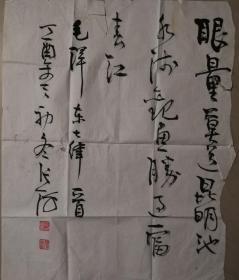 眼量莫道昆明池
水浅观鱼胜过富
春江
毛泽东七律一首
丁酉年初冬